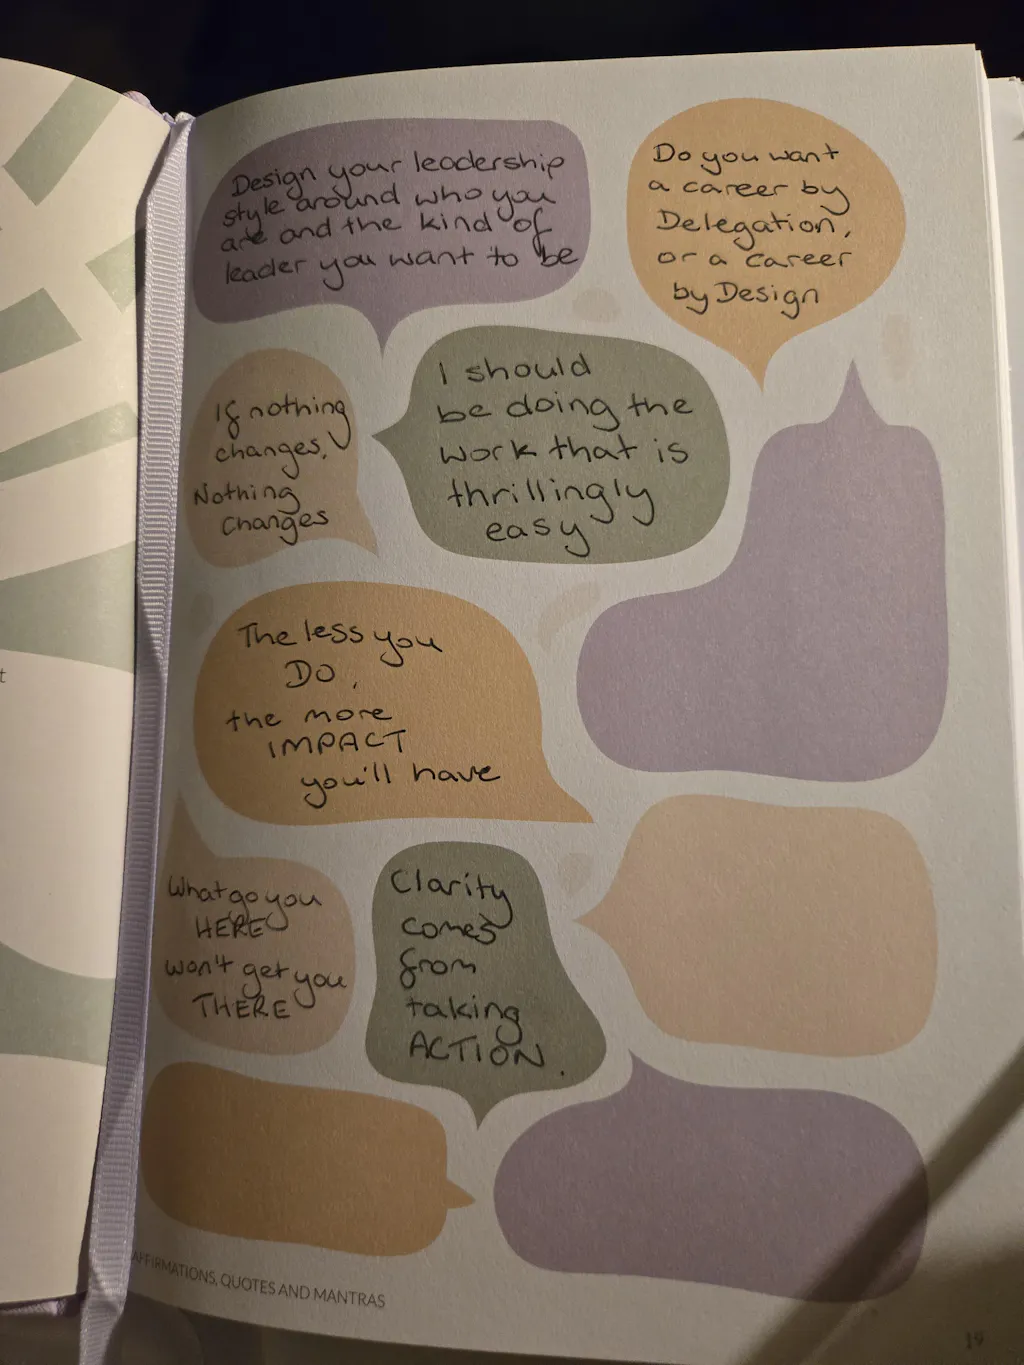 Design your leadership
style around who you
are and the kind of
leader you want to be
Do you want
a career by
Delegation,
or a career
by Design
If nothing
changes,
Nothing
changes
I should
be doing the
work that is
thrillingly
easy
The less you
DO,
the more
IMPACT
you'll have
What go you
HERE
won't get you
THERE
Clarity
comes
from
taking
ACTION.
AFFIRMATIONS, QUOTES AND MANTRAS
19
t